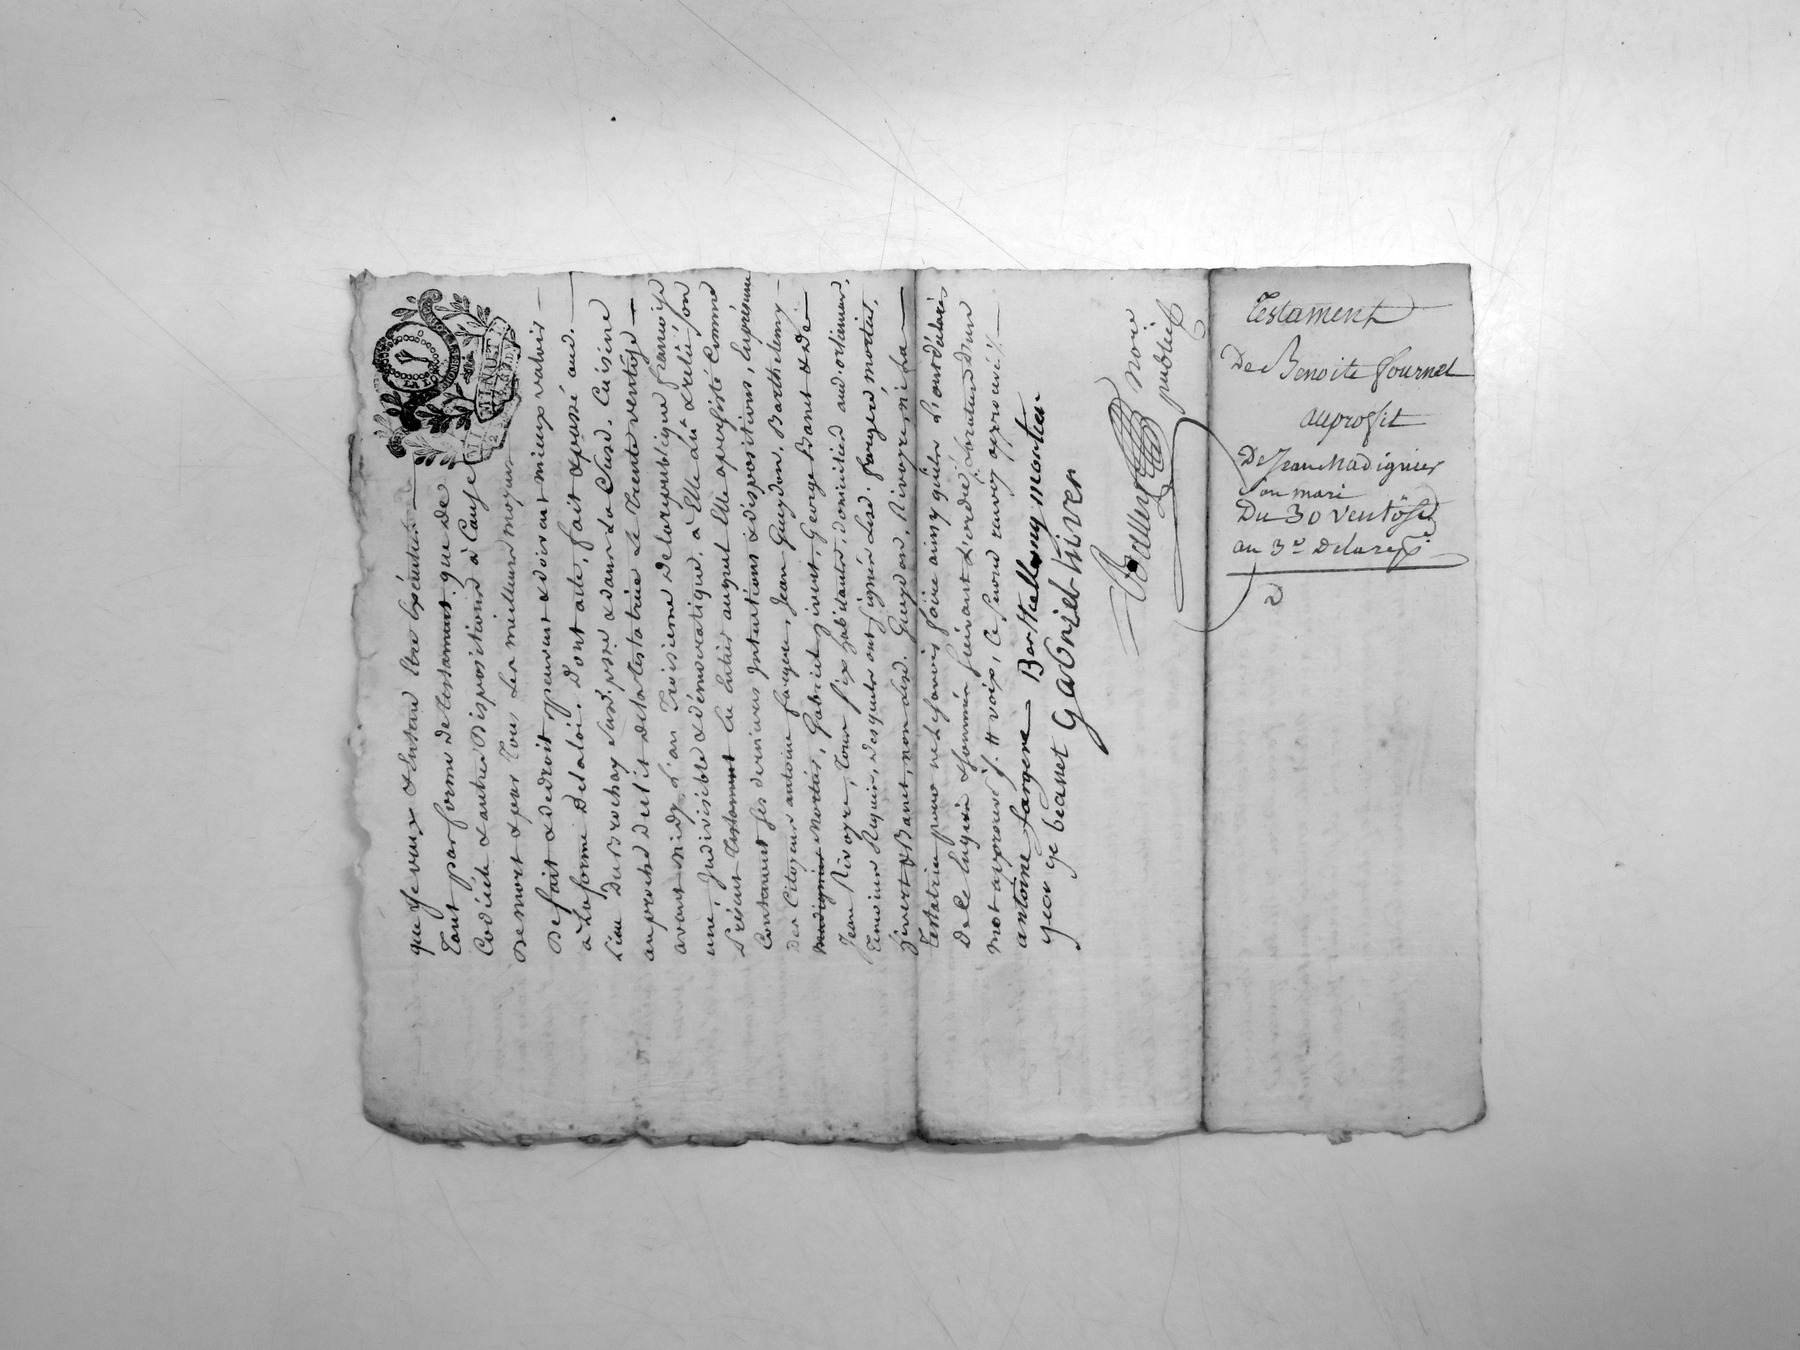 que je veux & entend être exécutée
tant par forme de testament, que de
Codicile & autres Dispositions à Cause
De mort & par tous les meilleurs moyens
De fait & de droit peuvent & doivent mieux valoir
à la forme De la loi. D'ont acte, fait & passé aud.
Lieu Du Brochay susd. & dans la Cuisine
au proche du lit de la testatrice le trente ventôse
avant midy, L'an troisieme De la republique française
une, Indivisible & Démocratique, à Elle lû & relû son
Présent testament en entier auquel Elle a persisté Comme
Contenant ses dernieres Intentions & dispositions, En présence
des Citoyens antoine fargere, Jean Guydon, Barthelemy
Mortier, Gabriel givert, George Banet & de
Jean Rivoyre, tous six habitants,
temoins Requis, desquels ont signé Lesd. fargere mortier,
givert & Banet, non Lesd. Guydon, Rivoyre, ni La
testatrice pour ne Savoir faire ainsy qu'ils L'ont déclarés
De Ce Enquis & Sommés Suivant L'ordre,
mot approuvé
antoine fargere Barthellemy mortier
george beanet Gabriel Giver
notre
publicq
Testament
De Benoite fournel
au proffit
De Jean Madignier
son mari
Du 30 ventôse
an 3e De la rep.e